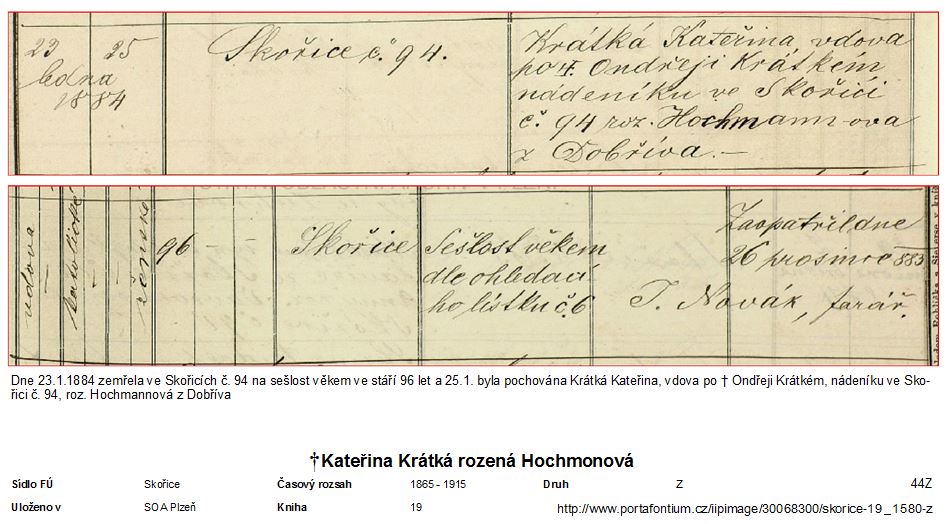 23 25
ledna
1884
Skořice č. 94.
Krátká Kateřina, vdova
po †. Ondřeji Krátkém
nádeníku ve Skořici
č. 94 roz. Hochmann-ova
z Dobříva. —
vdova
—
katolické
—
ženské
96 — —
Skořice
Sešlost věkem
dle ohledací
ho lístku č. 6
Zaopatřil dne
26 prosince 883
T. Novák, farář.
Dne 23.1.1884 zemřela ve Skořicích č. 94 na sešlost věkem ve stáří 96 let a 25.1. byla pochována Krátká Kateřina, vdova po † Ondřeji Krátkém, nádeníku ve Sko-
řici č. 94, roz. Hochmannová z Dobříva
†Kateřina Krátká rozená Hochmonová
Sídlo FÚ Skořice Časový rozsah 1865 - 1915 Druh Z 44Z
Uloženo v SOA Plzeň Kniha 19 http://www.portafontium.cz/iipimage/30068300/skorice-19_1580-z